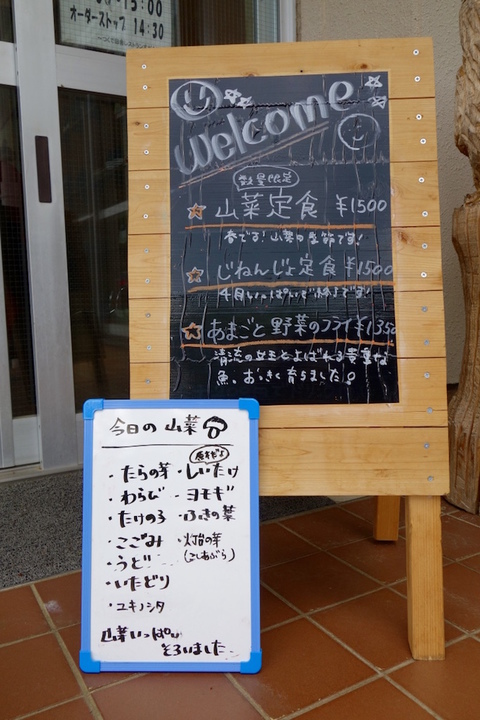 15:00
オーダーストップ 14:30
welcome
数量限定
山菜定食 ¥1500
春です!山菜の季節です!
じねんじょ定食 ¥1500
4月いっぱいで終了です!
あまごと野菜のフライ ¥1350
清流の女王とよばれる貴重な
魚。おっきく育ちました
今日の山菜
・たらの芽
・わらび
・たけのこ
・こごみ
・うど
・いたどり
・ユキノシタ
原木だよ
・しいたけ
・ヨモギ
・ふきの葉
(こしあぶら)
山菜いっぱい
そろいました